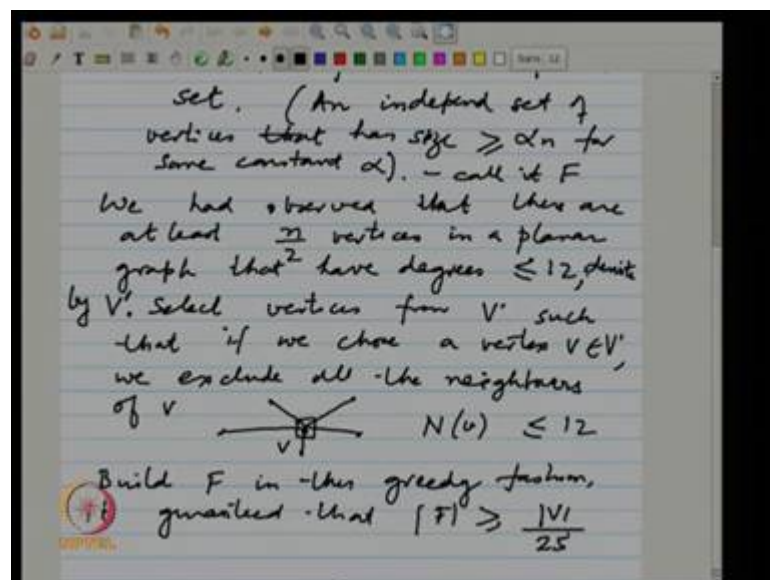 set. (An independ set of
vertices that has size ≥ αn for
some constant α). - call it F
We had observed that there are
at least n/2 vertices in a planar
graph that have degrees ≤ 12, denote
by V'. Select vertices from V' such
that if we chose a vertex v ∈ V',
we exclude all the neighbours
of v
v
N(v) ≤ 12
Build F in this greedy fashion,
guaranteed that |F| ≥ |V|/25
NPTEL